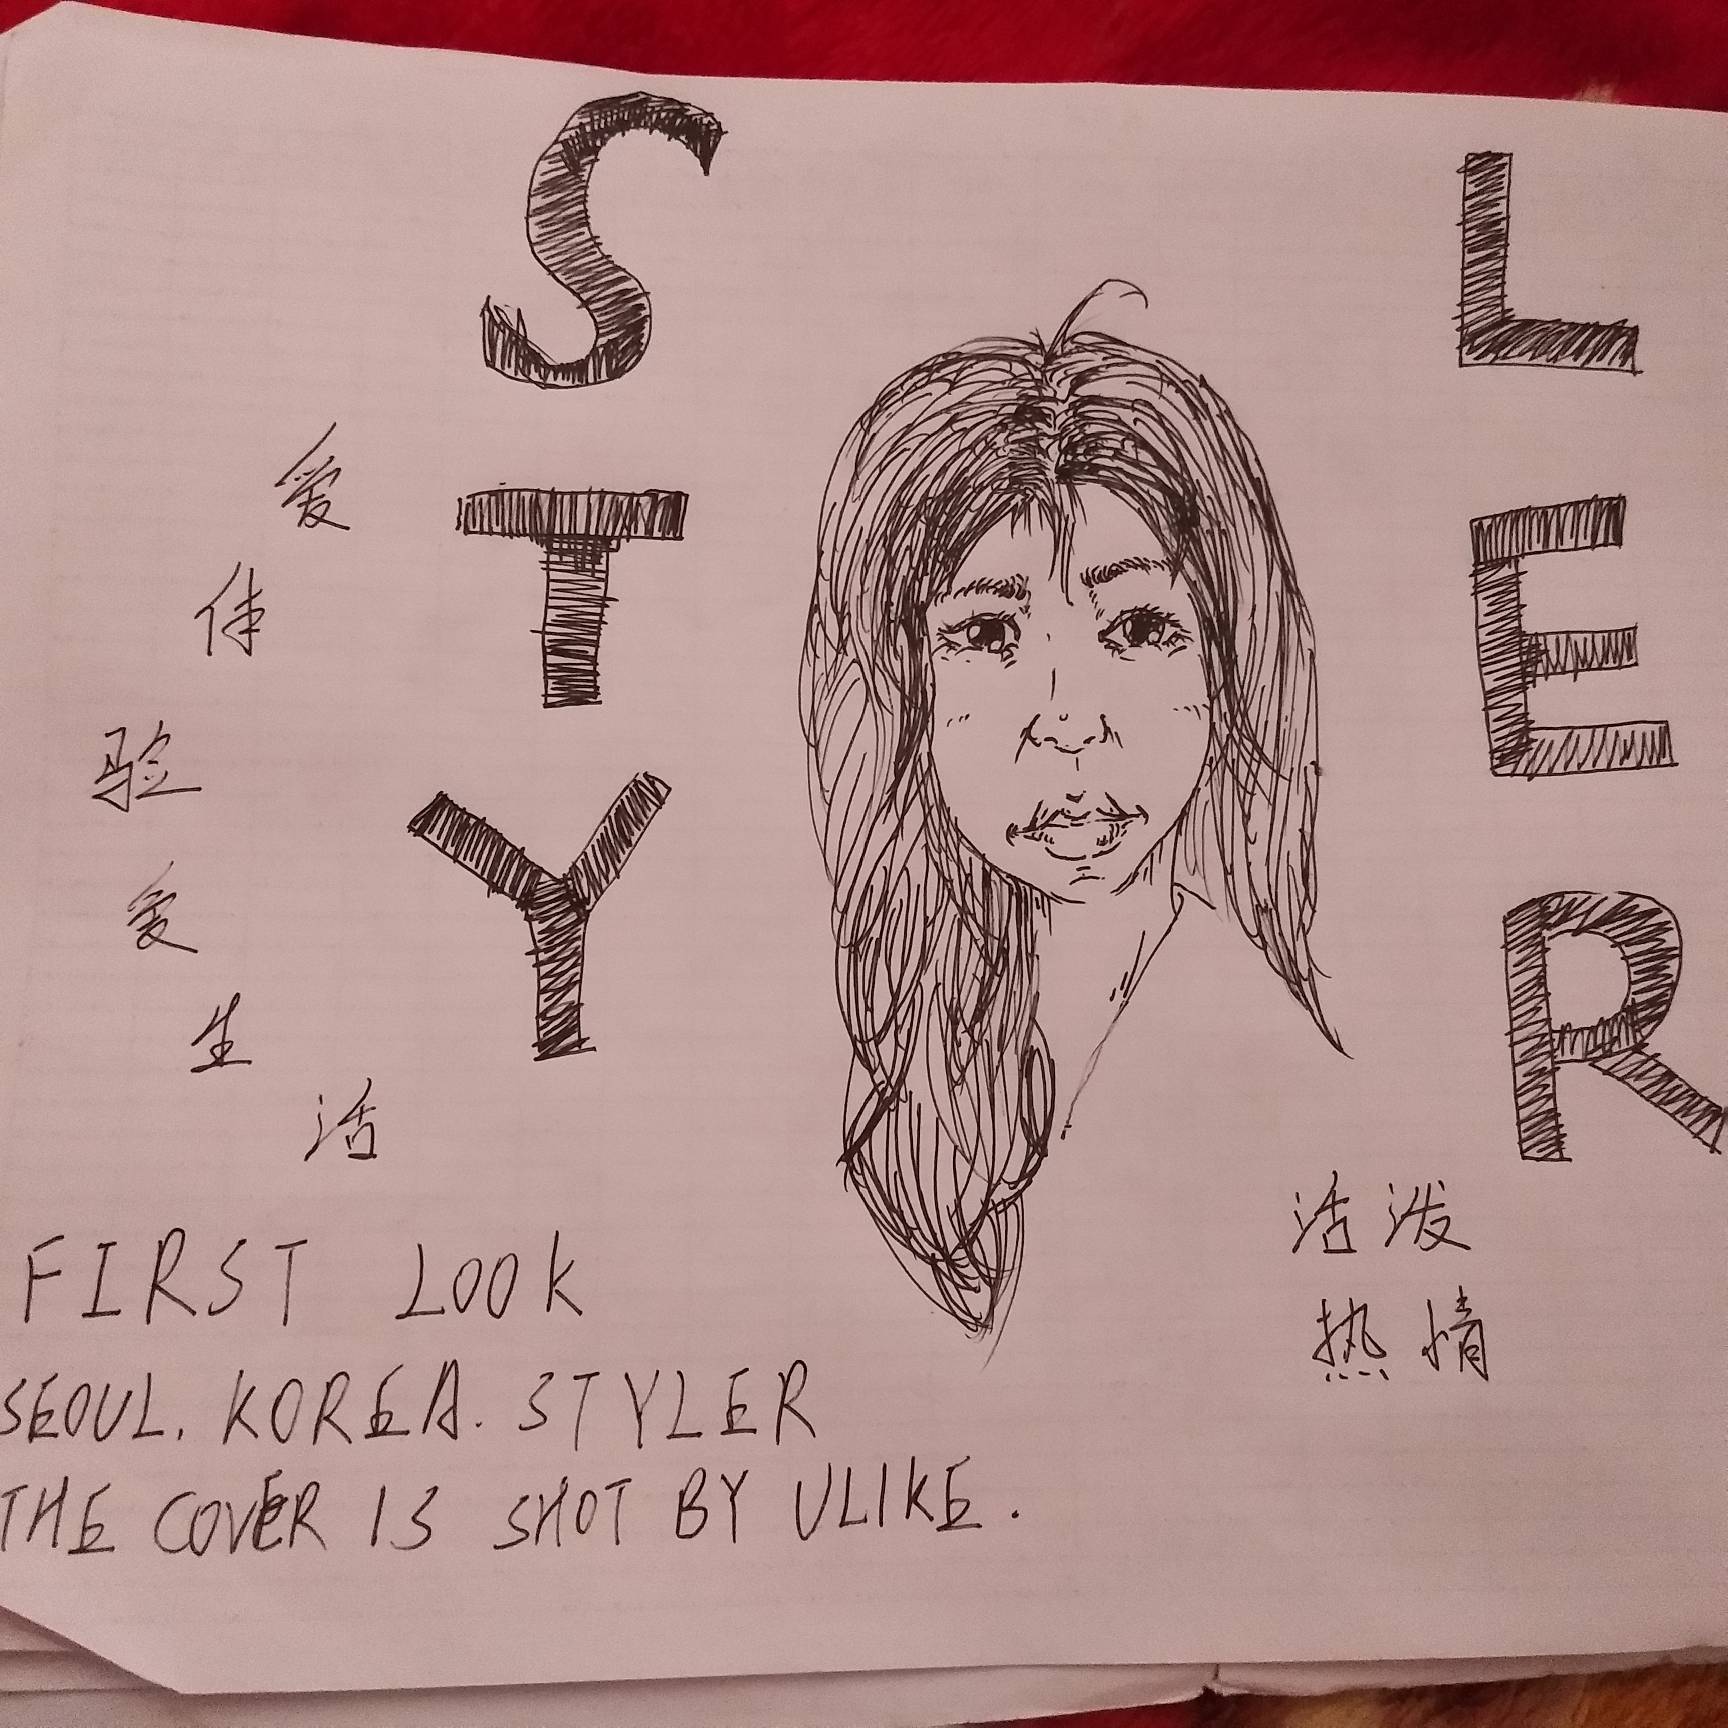 STY
LER
爱体验爱生活
活泼
热情
FIRST LOOK
SEOUL. KOREA. STYLER
THE COVER IS SHOT BY ULIKE.